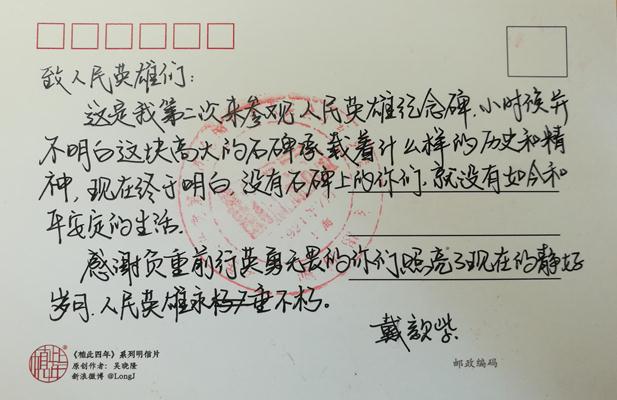 致人民英雄们：
这是我第二次来参观人民英雄纪念碑.小时候并
不明白这块高大的石碑承载着什么样的历史和精
神，现在终于明白，没有石碑上的你们，就没有如今和
平安定的生活.
感谢负重前行英勇无畏的你们照亮了现在的静好
岁月，人民英雄永垂不朽。
戴歆柴
《植此四年》系列明信片
原创作者：吴晓隆
新浪微博 @LongJ
邮政编码